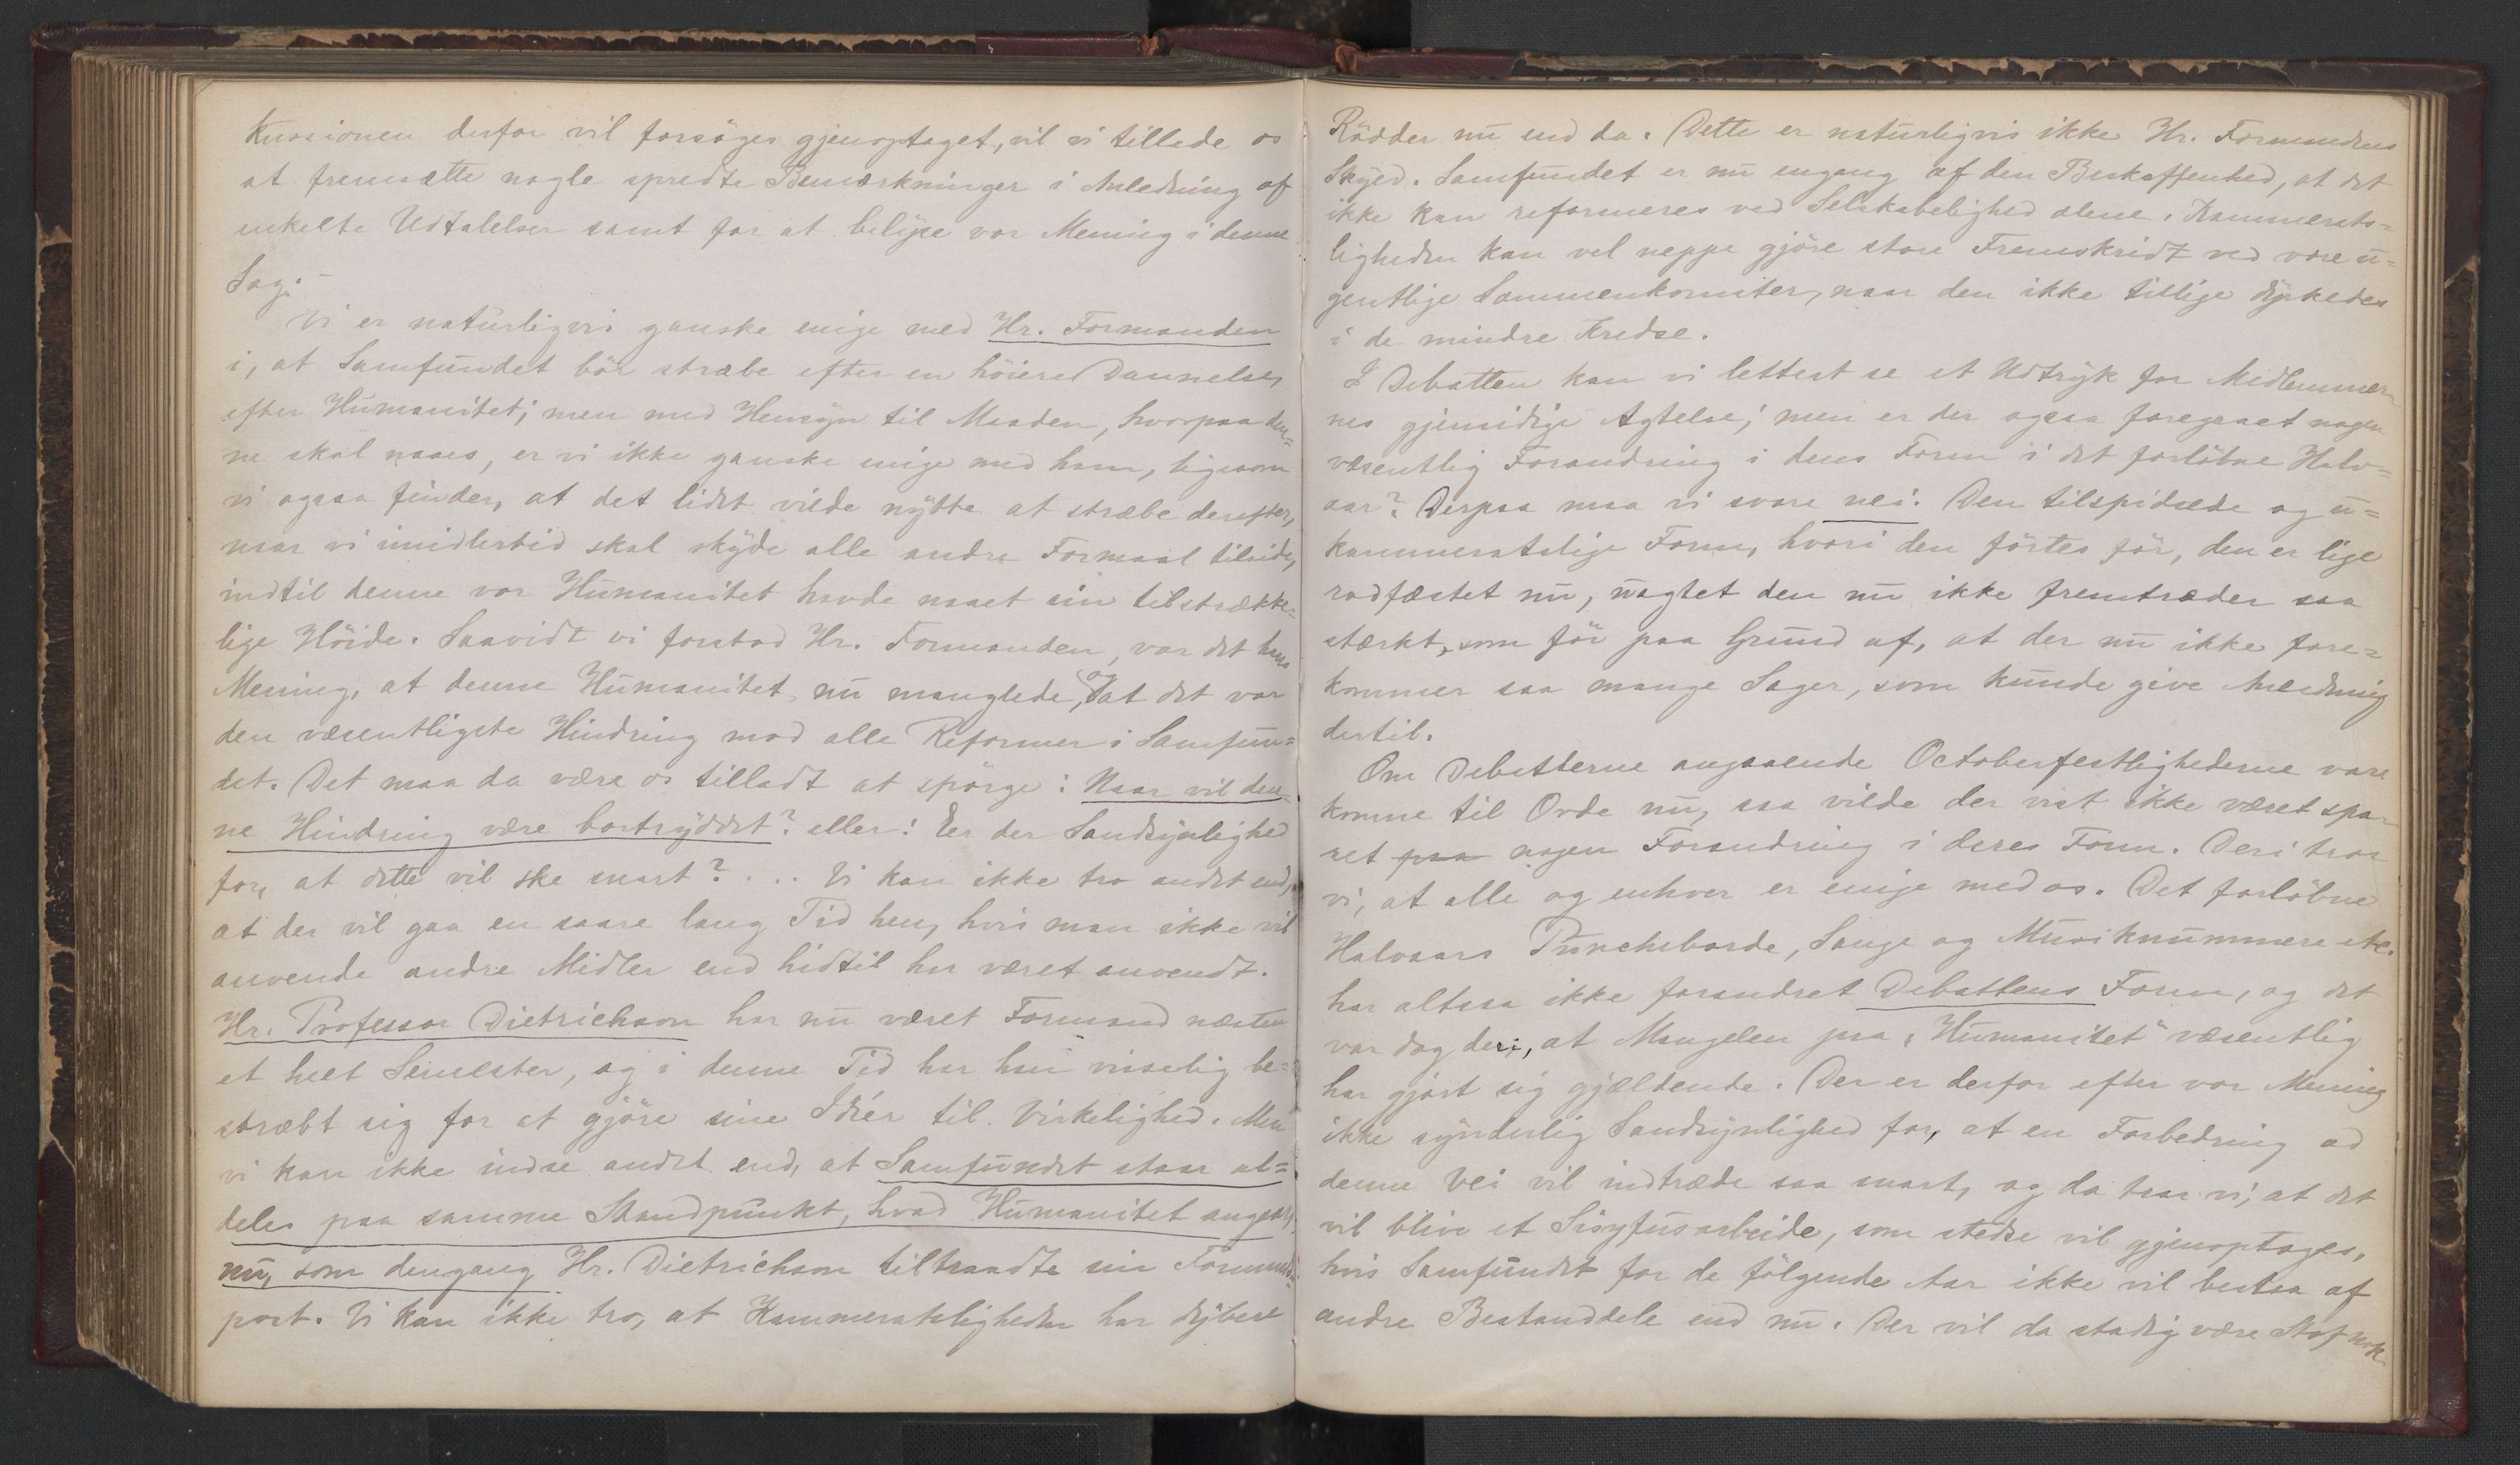 kussionen derfor vil forsøges gjenoptaget, vil vi tillade os
at fremsætte nogle spredte Bemærkninger i Anledning af
enkelte Udtalelser samt for at belyse vor Mening i denne
Sag. –
Vi er naturligvis ganske enige med Hr. Formanden
i, at Samfundet bør stræbe efter en høiere Dannelse,
efter Humanitet; men med Hensyn til Maaden, hvorpaa den=
ne skal naaes, er vi ikke ganske enige med ham, ligesom
vi ogsaa finder, at det lidet vilde nytte at stræbe derefter,
naar vi imidlertid skal skyde alle andre Formaal tilside,
indtil denne vor Humanitet havde naaet sin tilstrække=
lige Høide. Saavidt vi forstod Hr. Formanden, var det hans
Mening, at denne Humanitet nu manglede, og at det var
den væsentligste Hindring mod alle Reformer i Samfun=
det. Det maa da være os tilladt at spørge: Naar vil den=
ne Hindring være bortryddet? eller: Er der Sandsynlighed
for, at dette vil ske snart? ... Vi kan ikke tro andet end,
at der vil gaa en saare lang Tid hen, hvis man ikke vil
anvende andre Midler end hidtil har været anvendt.
Hr. Professor Dietrichson har nu været Formand næsten
et helt Semester, og i denne Tid har han visselig be=
stræbt sig for at gjøre sine Idéer til Virkelighed. Men
vi kan ikke indse andet end, at Samfundet staar al=
deles paa samme Standpunkt, hvad Humanitet angaar,
nu, som dengang Hr. Dietrichson tiltraadte sin Formands=
post. Vi kan ikke tro, at Kammeratsligheden har dybere
Rødder nu end da. Dette er naturligvis ikke Hr. Formandens
Skyld. Samfundet er nu engang af den Beskaffenhed, at det
ikke kan reformeres ved Selskabelighed alene. Kammerats=
ligheden kan vel neppe gjøre store Fremskridt ved vore u=
gentlige Sammenkomster, naar den ikke tillige dyrkedes
i de mindre Kredse.
I Debatten kan vi lettest se et Udtryk for Medlemmer
nes gjensidige Agtelse; men er der ogsaa foregaaet nogen
væsentlig Forandring i dens Form i det forløbne Halv=
aar? Derpaa maa vi svare nei. Den tilspidsede og u=
kammeratslige Form, hvori den førtes før, den er lige
rodfæstet nu, uagtet den nu ikke fremtræder saa
stærkt, som før paa Grund af, at der nu ikke fore=
kommer saa mange Sager, som kunde give Anledning
dertil.
Om Debatterne angaaende Octoberfestlighederne vare
komne til Orde nu, saa vilde der vist ikke været spo=
ret paa nogen Forandring i deres Form. Deri tror
vi, at alle og enhver er enige med os. Det forløbne
Halvaars Puncheborde, Sange og Musiknummere etc.
har altsaa ikke forandret Debattens Form, og det
var dog deri, at Mangelen paa „Humanitet" væsentlig
har gjort sig gjældende. Der er derfor efter vor Mening
ikke synderlig Sandsynlighed for, at en Forbedring ad
denne Vei vil indtræde saa snart, og da tror vi, at det
vil blive et Sisyfusarbeide, som stedse vil gjenoptages,
hvis Samfundet for de følgende Aar ikke vil bestaa af
andre Bestanddele end nu. Der vil da stadig være Stof nok